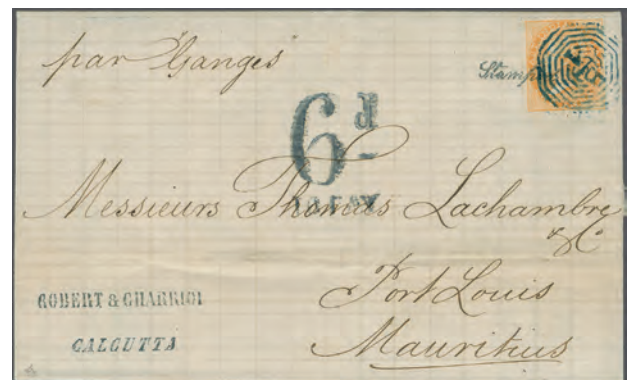 par "Ganges"
Stamp
6d
TO PAY
Messieurs Thomas Lachambre
& Cº
Port Louis
Mauritius
ROBERT & CHARRIOL
CALCUTTA